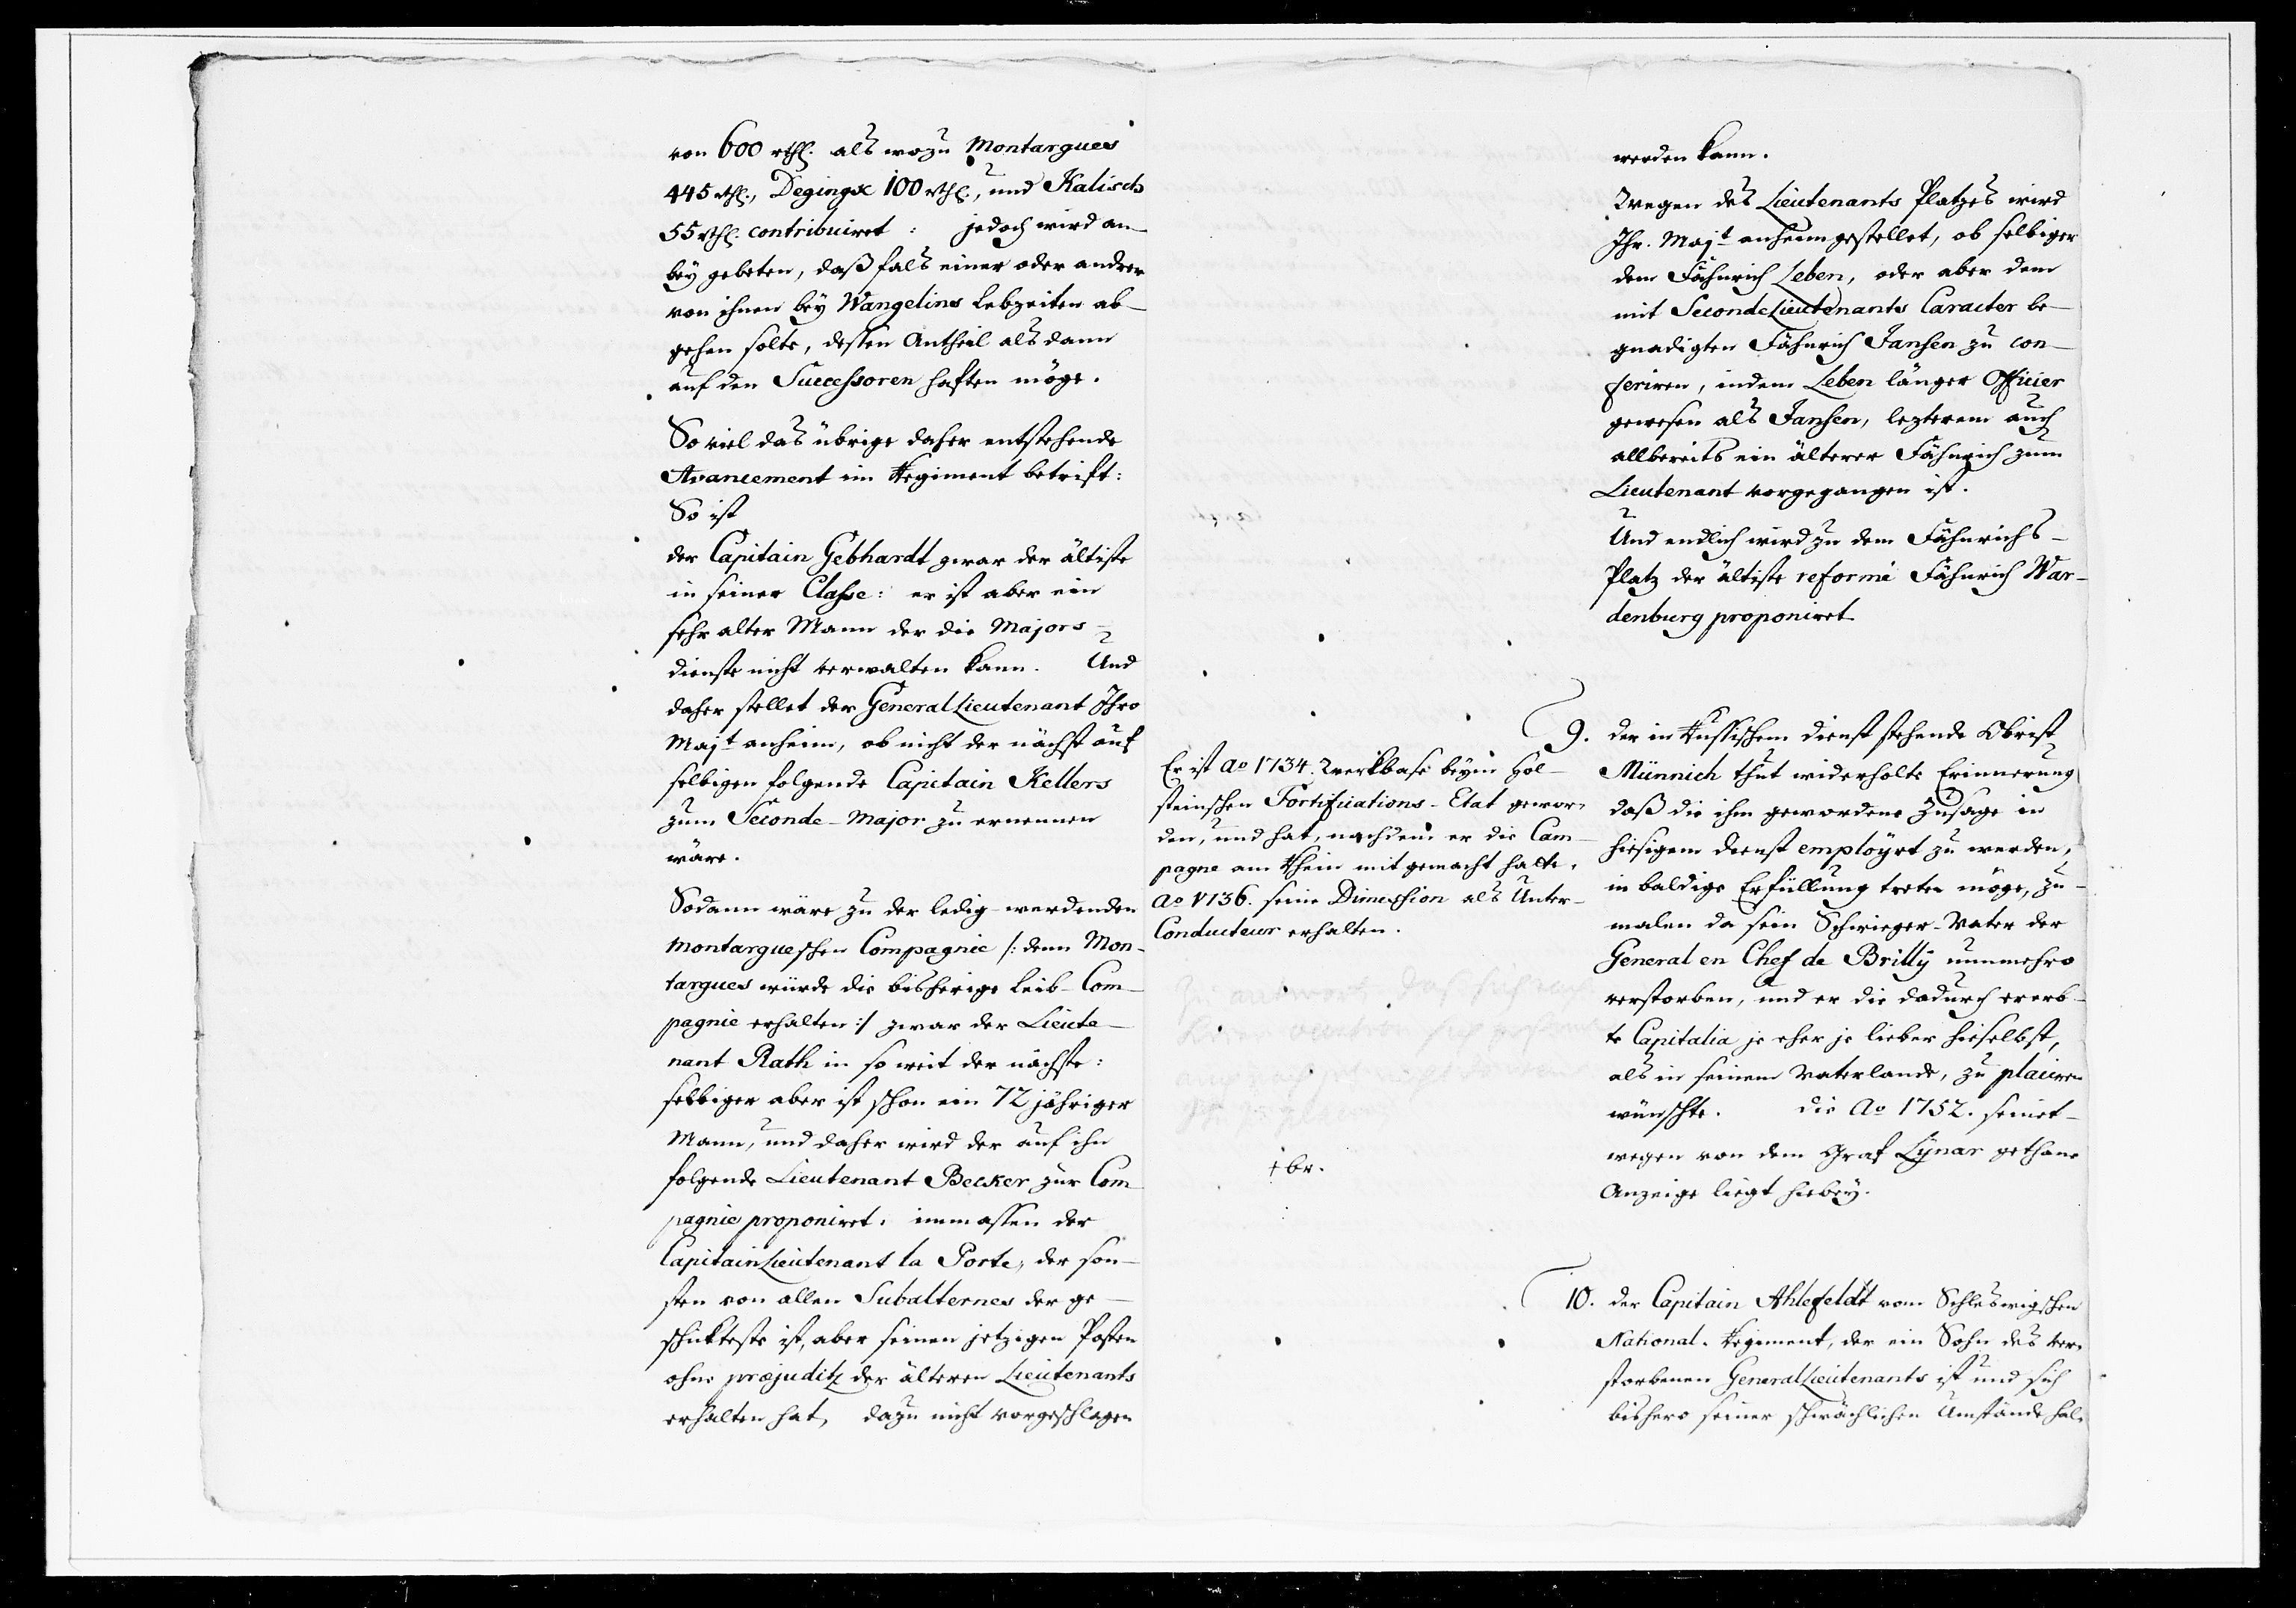 von 600 rthl. als wozu Montargues
445 rthl., Degingk 100 rthl., und Kalisch
55 rthl. contribuiret: jedoch wird an-
bey gebeten, daß fals einer oder andrer
von ihnen bey Wangelins Lebzeiten ab-
gehen solte, dessen Antheil als dann
auf den Successoren haften möge.
So viel das übrige daher entstehende
Avancement im Regiment betrift:
So ist
der Capitain Gebhardt zwar der ältiste
in seiner Classe: er ist aber ein
sehr alter Mann der die Majors-
dienste nicht verwalten kann. Und
daher stellet der General Lieutenant Ihro
Majt anheim, ob nicht der nächst auf
selbigen folgende Capitain Kellers
zum Seconde-Major zu ernennen
wäre.
Sodann wäre zu der ledig-werdenden
Montargueschen Compagnie /: denn Mon-
targues würde die bisherige Leib-Com-
pagnie erhalten :/ zwar der Lieute-
nant Rath in so weit der nächste:
selbiger aber ist schon ein 72 jähriger
Mann, und daher wird der auf ihn
folgende Lieutenant Becker zur Com-
pagnie proponiret. immassen der
Capitain Lieutenant la Porte, der son-
sten von allen Subalternes der ge-
schickteste ist, aber seinen jetzigen Posten
ohne præjuditz der älteren Lieutenants
erhalten hat, dazu nicht vorgeschlagen
werden kann.
Wegen des Lieutenants Platzes wird
Ihr. Majt anheimgestellet, ob selbiger
dem Fähnrich Leben, oder aber dem
mit Seconde Lieutenants Caracter be-
gnadigten Fähnrich Jansen zu con-
feriren, indem Leben länger Officier
gewesen als Jansen, lezterem auch
allbereits ein älterer Fähnrich zum
Lieutenant vorgegangen ist.
Und endlich wird zu dem Fähnrichs-
Platz der ältiste reformé Fähnrich War-
denburg proponiret
Er ist Ao 1734. Werkbase beym Hol-
steinschen Fortifications-Etat gewor-
den, und hat, nachdem er die Cam-
pagne am Rhein mit gemacht hatte.
Ao 1736. seine Dimission als Unter-
Conducteur erhalten.
+ br.
9. der in Russischem dienst stehende Obrist
Münnich thut widerholte Erinnerung
daß die ihm gewordene Zusage in
hiesigem dienst employrt zu werden,
in baldige Erfüllung treten möge, zu-
malen da sein Schwieger-Vater der
General en Chef de Brilly nunmehro
verstorben, und er die dadurch ererb-
te Capitalia je eher je lieber hieselbst,
als in seinem Vaterlande, zu placiren
wünschte. die Ao 1752. seinet-
wegen von dem Graf Lynar gethane
Anzeige liegt hiebey.
10. der Capitain Ahlefeldt vom Schleswigschen
National-Regiment, der ein Sohn des ver-
storbenen General Lieutenants ist und sich
bishero seiner schwächlichen Umstände hal-